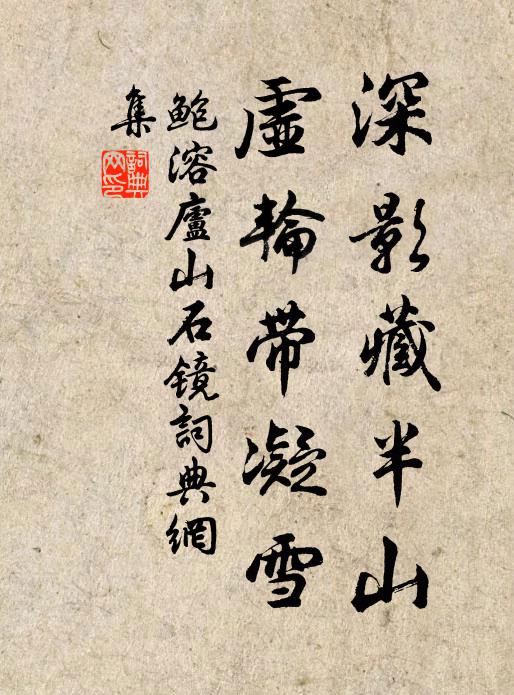 深影藏半山
虛輪帶凝雪
鮑溶廬山石镜詞典網
集
詞典
网印